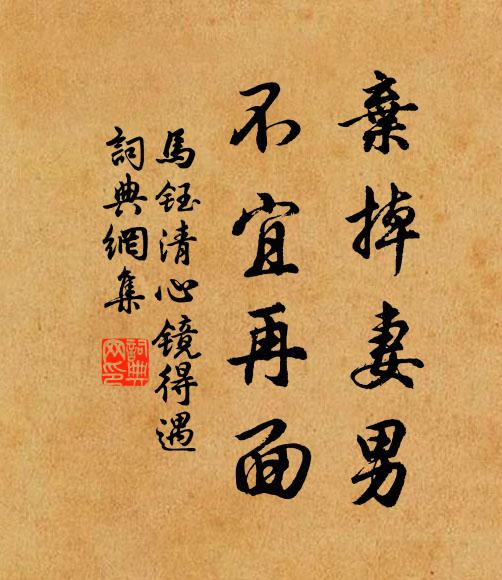 棄掉妻男
不宜再面
馬鈺清心鏡得遇
詞典網集
詞典網印